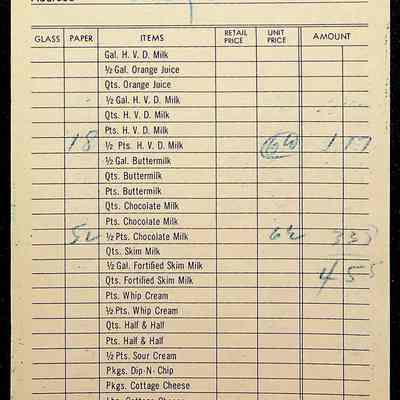 GLASS PAPER ITEMS RETAIL PRICE UNIT PRICE AMOUNT
Gal. H. V. D. Milk
½ Gal. Orange Juice
Qts. Orange Juice
½ Gal. H. V. D. Milk
Qts. H. V. D. Milk
Pts. H. V. D. Milk
18 ½ Pts. H. V. D. Milk
½ Gal. Buttermilk
Qts. Buttermilk
Pts. Buttermilk
Qts. Chocolate Milk
Pts. Chocolate Milk
½ Pts. Chocolate Milk 6½
Qts. Skim Milk
½ Gal. Fortified Skim Milk
Qts. Fortified Skim Milk
Pts. Whip Cream
½ Pts. Whip Cream
Qts. Half & Half
Pts. Half & Half
½ Pts. Sour Cream
Pkgs. Dip-N-Chip
Pkgs. Cottage Cheese